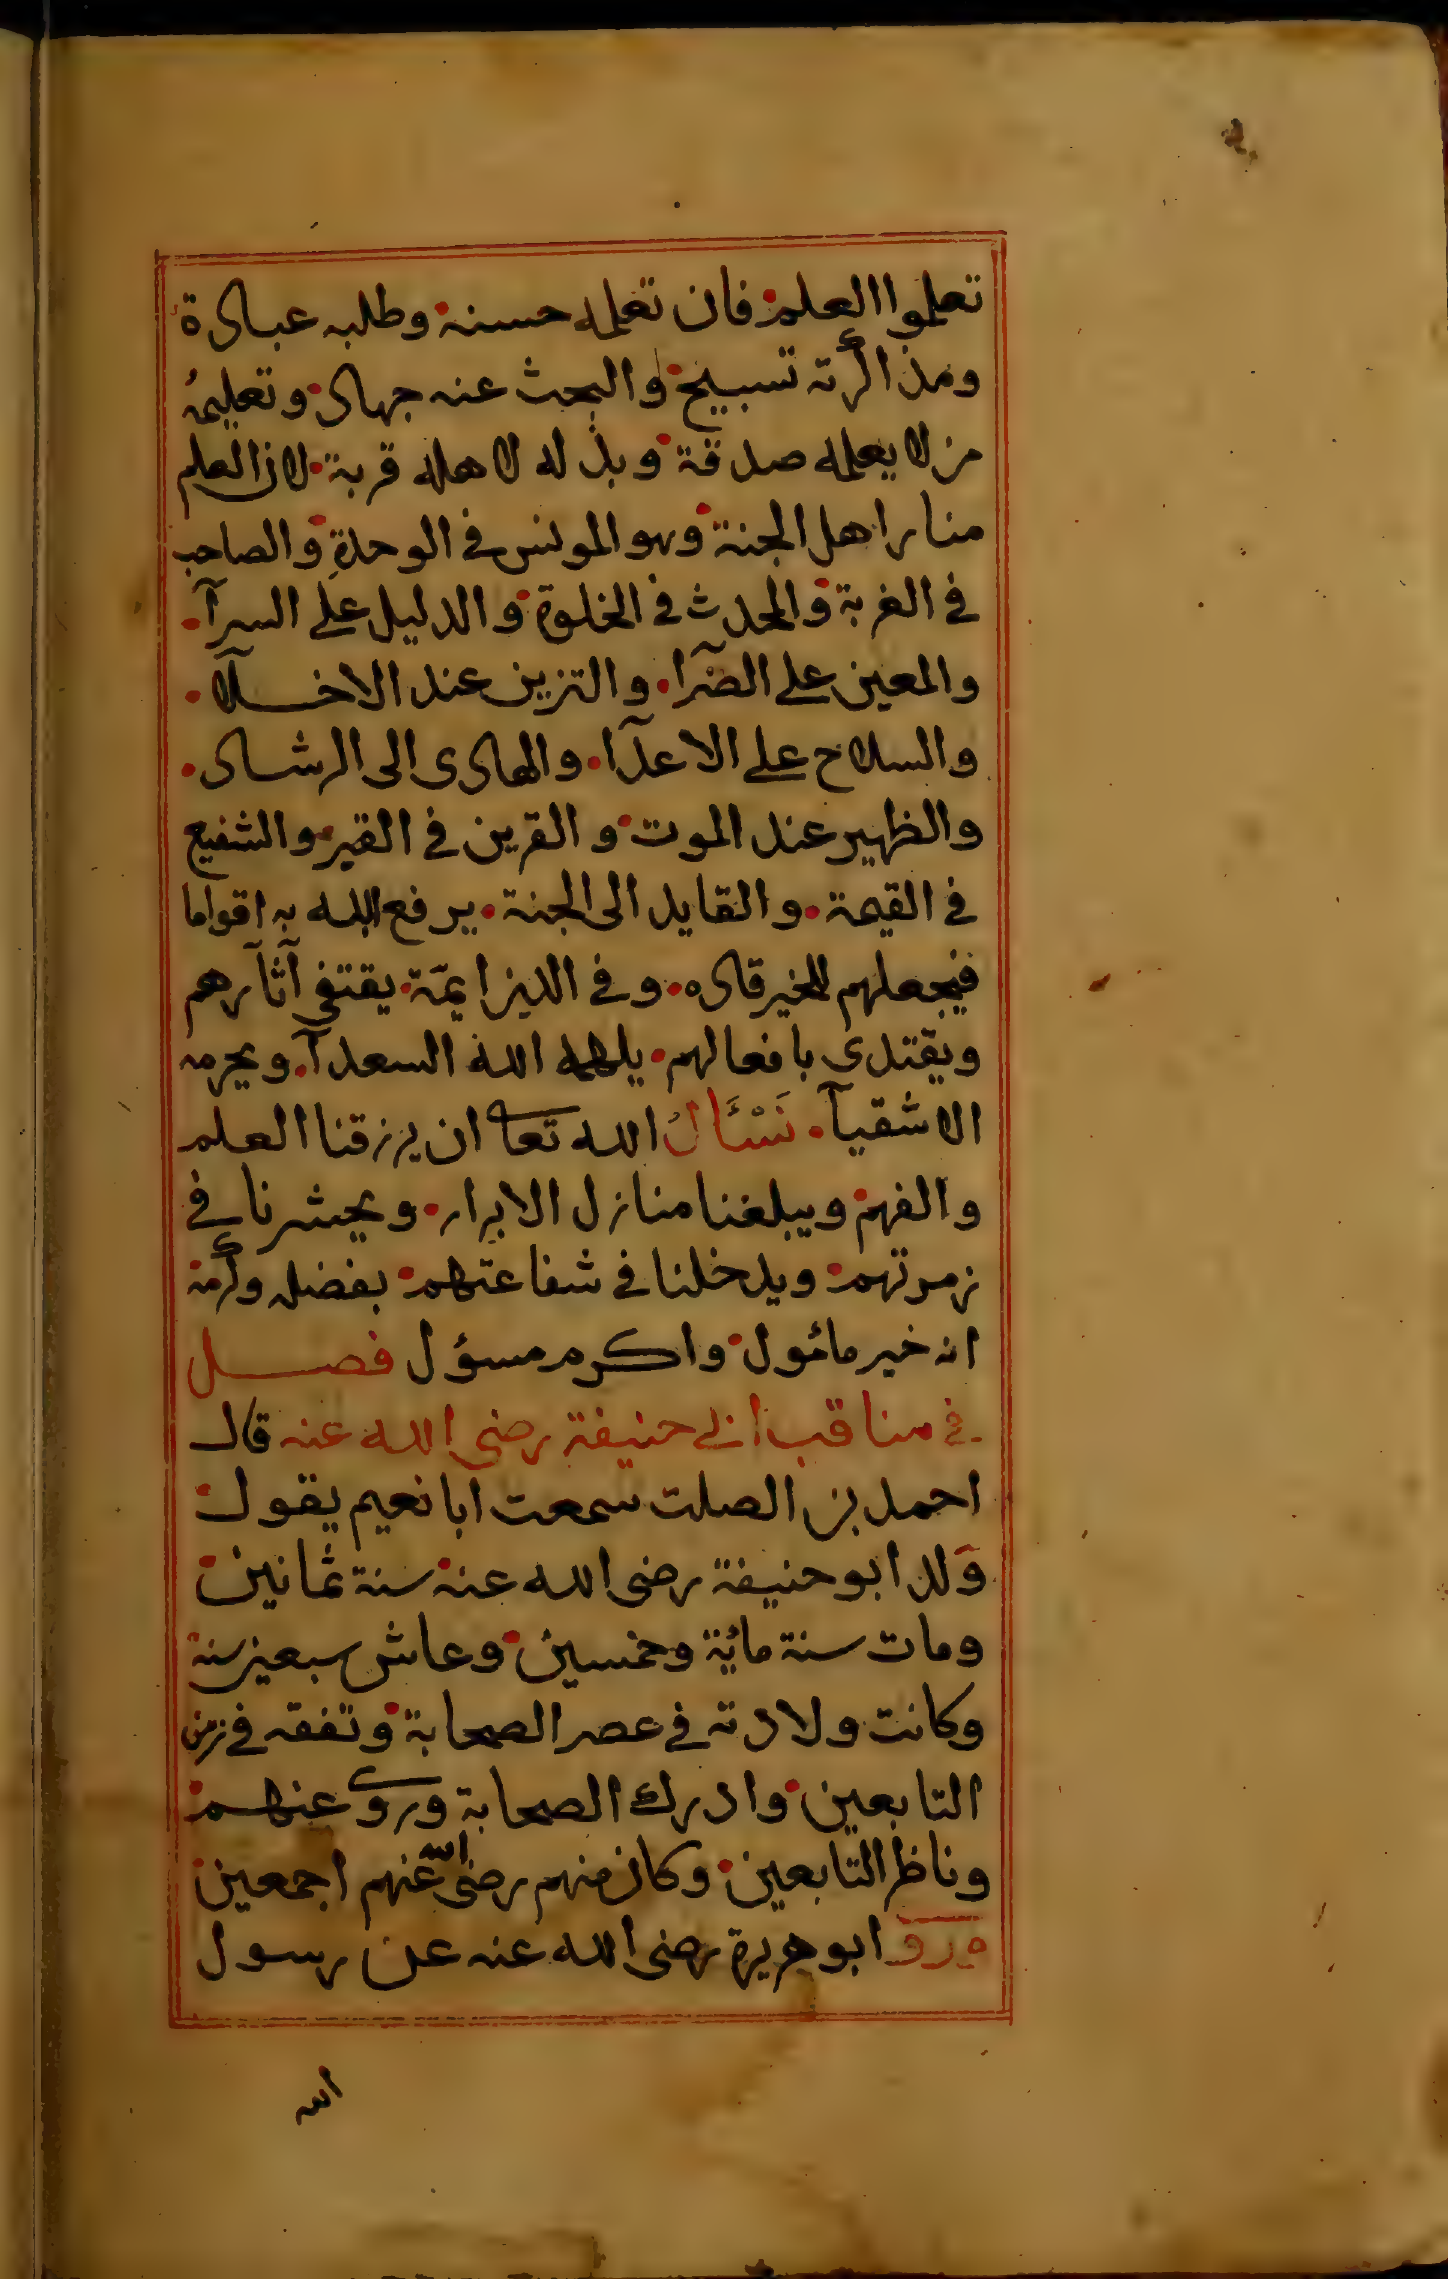 تعلموا العلم فان تعلمه حسنة وطلبه عبادة
ومذاكرته تسبيح والبحث عنه جهاد وتعليمُه
من لا يعلمه صدقة وبذله لاهله قربة لان العلم
منار اهل الجنة وهو المونس في الوحدةِ والصاحب
في الغربة والمحدث في الخلوة والدليل على السرآ
والمعين على الضرآ والتزين عند الاخلآ
والسلاح على الاعدآ والهادى الى الرشاد
والظهير عند الموت والقرين في القبر والشفيع
في القيمة والقايد الى الجنة يرفع الله به اقواما
فيجعلهم للخير قاده وفي الدين ايمّة يقتفي آثارهم
ويقتدي بافعالهم يلهمه الله السعدآ ويحرمه
الاشقيآ نَسْئَالُ الله تعا ان يرزقنا العلم
والفهم ويبلغنا منازل الابرار ويحشرنا في
زمرتهم ويدخلنا في شفاعتهم بفضله وكرمه
انه خير مائمول واكرم مسؤل فصل
في مناقب ابي حنيفة رضى الله عنه قال
احمد بن الصلت سمعت ابا نعيم يقول
وَلد ابو حنيفة رضى الله عنه سنة ثمانين
ومات سنة مائة وخمسين وعاش سبعين سنة
وكانت ولادته في عصر الصحابة وتفقه في زمن
التابعين وادرك الصحابة وروى عنهم
وناظر التابعين وكان منهم رضى الله عنهم اجمعين
ابو هريرة رضى الله عنه عن رسول
الله